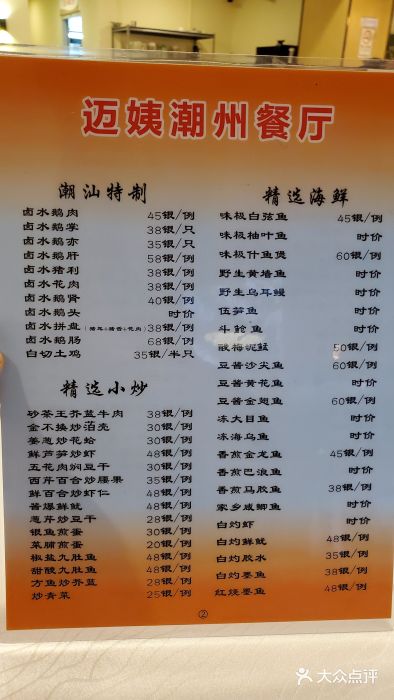 迈姨潮州餐厅
潮汕特制
卤水鹅肉 45银/例
卤水鹅掌 38银/只
卤水鹅亦 35银/只
卤水鹅肝 58银/例
卤水猪利 38银/例
卤水花肉 38银/例
卤水鹅肾 40银/例
卤水鹅头 时价
卤水拼盘(猪耳+猪舌+花肉) 38银/例
卤水鹅肠 68银/例
白切土鸡 35银/半只
精选小炒
砂茶王芥蓝牛肉 38银/例
金不换炒泊壳 30银/例
姜葱炒花蛤 30银/例
鲜芦笋炒虾 48银/例
五花肉焖豆干 30银/例
西芹百合炒腰果 35银/例
鲜百合炒虾仁 48银/例
酱爆鲜鱿 48银/例
葱芹炒豆干 28银/例
银鱼煎蛋 30银/例
菜脯煎蛋 20银/例
椒盐九肚鱼 48银/例
甜酸九肚鱼 48银/例
方鱼炒芥蓝 28银/例
炒青菜 25银/例
精选海鲜
味极白弦鱼 45银/例
味极柚叶鱼 时价
味极什鱼煲 60银/例
野生黄墙鱼 时价
野生乌耳鳗 时价
伍笋鱼 时价
斗鲳鱼 时价
酸梅泥鯭 50银/例
豆酱沙尖鱼 60银/例
豆酱黄花鱼 时价
豆酱金翅鱼 60银/例
冻大目鱼 时价
冻海乌鱼 时价
香煎金龙鱼 45银/例
香煎巴浪鱼 时价
香煎马胶鱼 38银/例
家乡咸鲫鱼 时价
白灼虾 时价
白灼鲜鱿 48银/例
白灼胶水 35银/例
白灼墨鱼 38银/例
红烧墨鱼 48银/例
②
大众点评